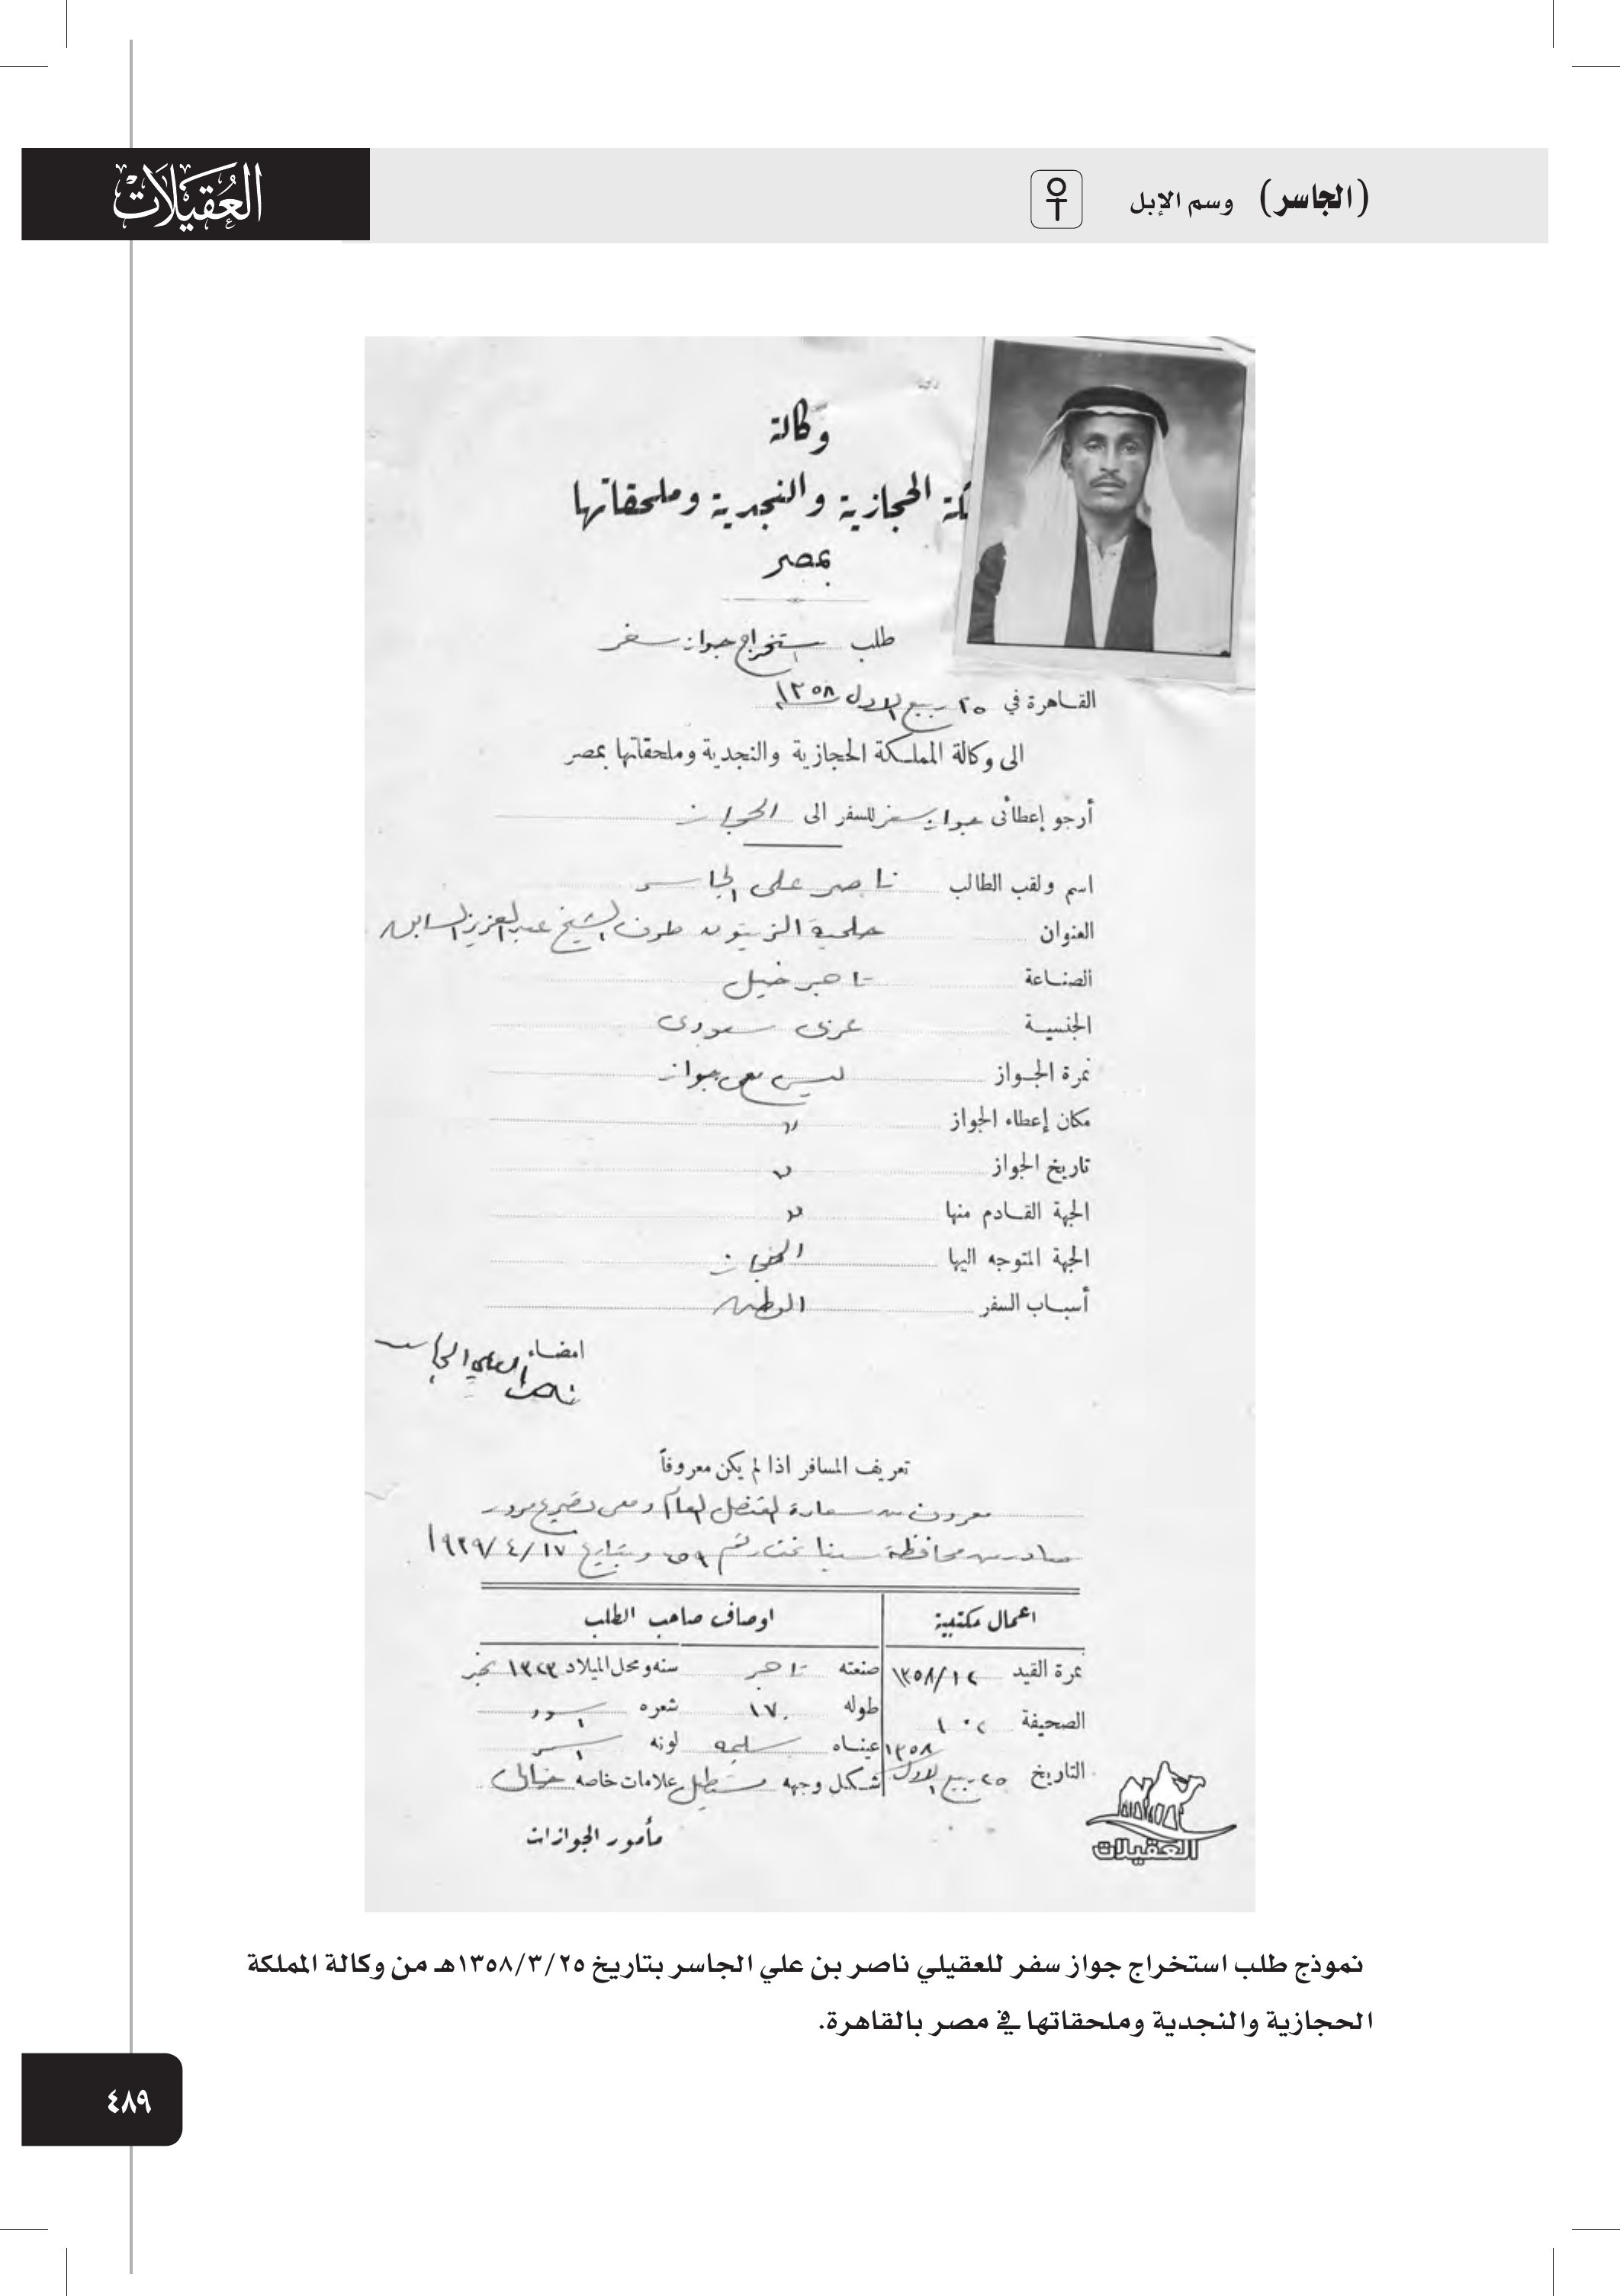 (الجاسر) وسم الإبل
العقيلات
وكالة
الحجازية والنجدية وملحقاتها
بمصر
طلب استخراج جواز سفر
القاهرة في ٢٥ ربيع الاول ١٣٥٨
الى وكالة المملكة الحجازية والنجدية وملحقاتها بمصر
أرجو إعطائى جواز سفر للسفر الى الحجاز
اسم ولقب الطالب ناصر على الجاسر
العنوان حلمية الزيتون طرف الشيخ عبد العزيز السابق
الصناعة تاجر خيل
الجنسية عربى سعودى
نمرة الجواز ليس معى جواز
مكان إعطاء الجواز "
تاريخ الجواز "
الجهة القادم منها "
الجهة المتوجه اليها الحجاز
أسباب السفر الوطن
امضاء
ناصر العلي الجاسر
تعريف المسافر اذا لم يكن معروفاً
معروف من سعادة القنصل العام ومعى تصريح مرور
صادر من محافظة سينا تحت رقم ٥٩ وبتاريخ ١٧/٤/١٩٣٩
اعمال مكتبية اوصاف صاحب الطلب
نمرة القيد ١٢/١٣٥٨ صنعته تاجر سنه ومحل الميلاد ١٣٢٣
الصحيفة ١٠٢ طوله ١٧٠ شعره اسود
عيناه سليمه لونه اسمر
التاريخ ٢٥ ربيع الاول ١٣٥٨ شكل وجهه مستطيل علامات خاصه خالى
مأمور الجوازات
العقيلات
نموذج طلب استخراج جواز سفر للعقيلي ناصر بن علي الجاسر بتاريخ ١٣٥٨/٣/٢٥هـ من وكالة المملكة
الحجازية والنجدية وملحقاتها في مصر بالقاهرة.
٤٨٩